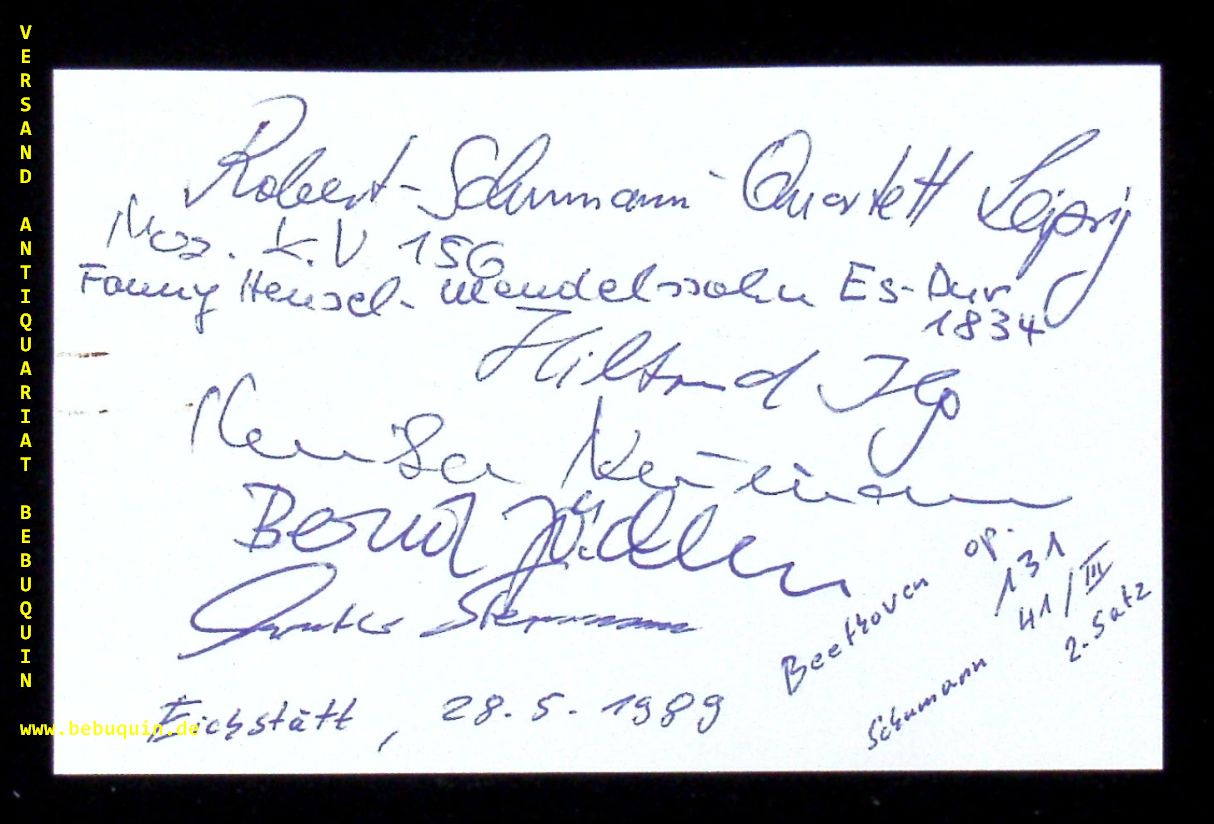 VERSAND ANTIQUARIAT BEBUQUIN
Robert-Schumann-Quartett Leipzig
Moz. K.V 156
Fanny Hensel-Mendelssohn Es-Dur
1834
Hiltrud Ilg
Neumann
Bernd Jäcklin
Eichstätt, 28.5.1989
Beethoven op. 131
Schumann 41/III
2. Satz
www.bebuquin.de